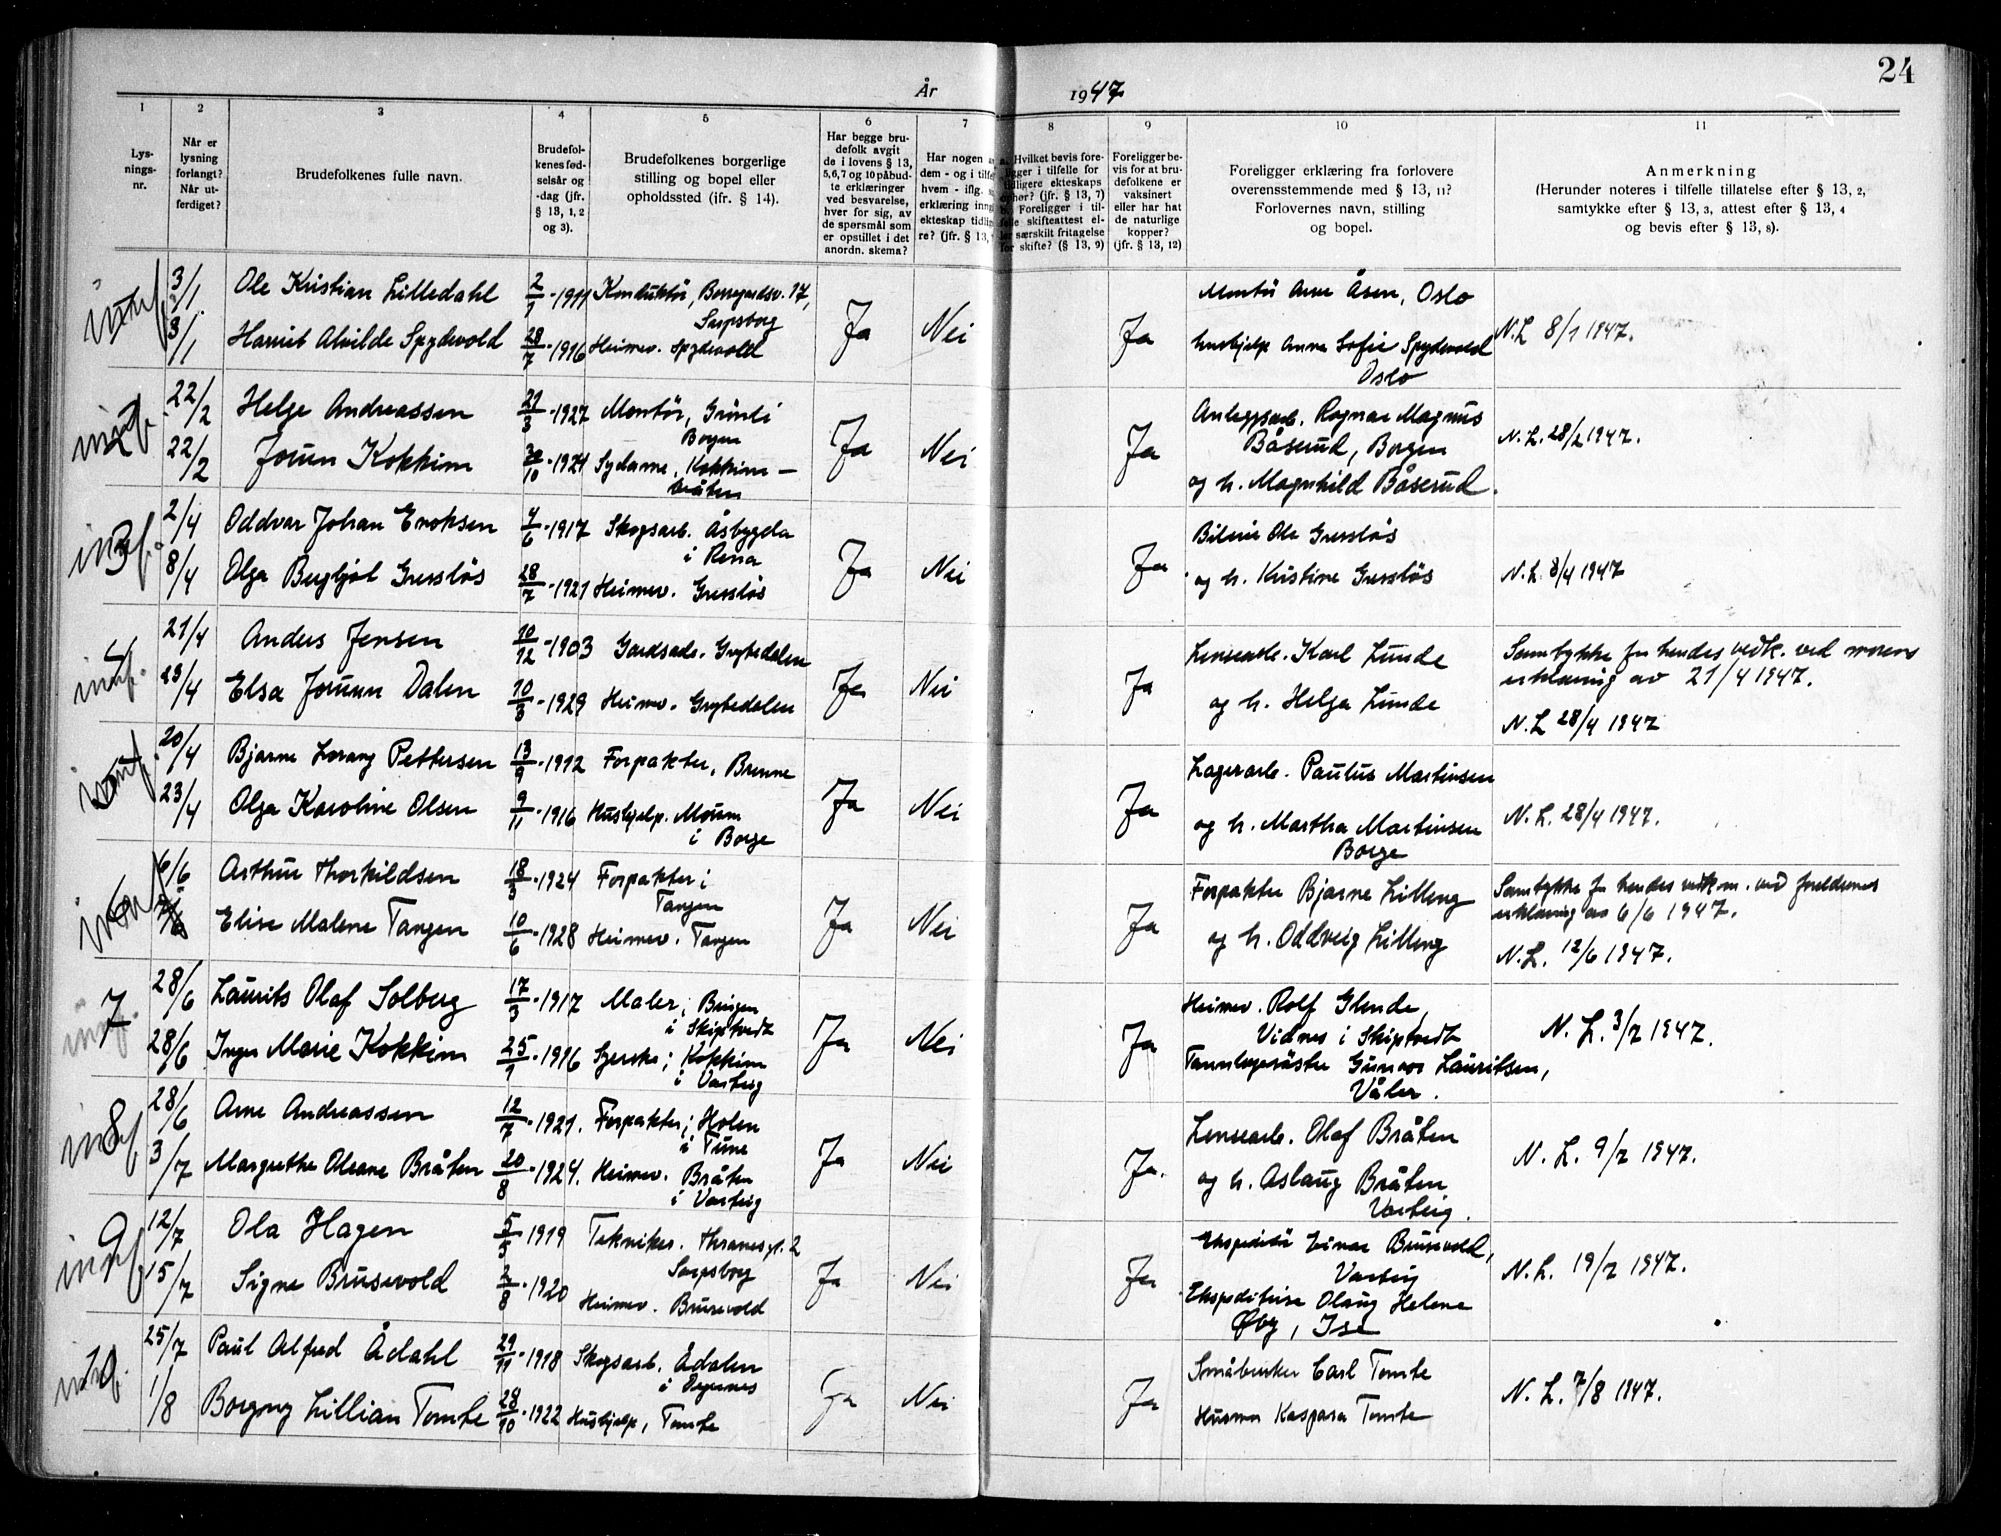 24
År 1947
1 2 3 4 5 6 7 8 9 10 11
Lys-
nings-
nr.
Når er
lysning
forlangt?
Når ut-
ferdiget?
Brudefolkenes fulle navn.
Brudefol-
kenes fød-
selsår og
-dag (jfr.
§ 13, 1, 2
og 3).
Brudefolkenes borgerlige
stilling og bopel eller
opholdssted (jfr. § 14).
Har begge bru-
defolk avgit
de i lovens § 13,
5, 6, 7 og 10 påbud-
te erklæringer
ved besvarelse,
hver for sig, av
de spørsmål som
er opstillet i det
anordn. skema?
Har nogen a
dem - og i tilfe
hvem - iflg.
erklæring inng
ekteskap tidlig
re? (jfr. § 13,
a. Hvilket bevis fore-
ligger i tilfelle for
tidligere ekteskaps
ophør? (jfr. § 13, 7)
b. Foreligger i til-
felle skifteattest el-
ler særskilt fritagelse
for skifte? (§ 13, 9)
Foreligger be-
vis for at bru-
defolkene er
vaksinert
eller har hat
de naturlige
kopper?
(jfr. § 13, 12)
Foreligger erklæring fra forlovere
overensstemmende med § 13, 11?
Forlovernes navn, stilling
og bopel.
Anmerkning
(Herunder noteres i tilfelle tillatelse efter § 13, 2,
samtykke efter § 13, 3, attest efter § 13, 4
og bevis efter § 13, 8).
3/1 Ole Kristian Lilledahl 2/1 - 1911 Konduktør, Borregaardsv. 17, Montør Arne Åsen, Oslo
Sarpsborg
3/1 Harriet Alvilde Spydevold 28/7 - 1916 Heimev. Spydevold Ja Nei Ja Anna Sofie Spydevold N.L 8/1 1947.
Oslo
22/2 Helge Andreassen 21/3 - 1927 Montør, Grinli Anleggsarb. Ragnar Magnus
Borgen Ja Nei Ja Båserud, Borgen N.L. 28/2 1947.
22/2 Jorun Kokkim 30/10 - 1921 Sydame, Kokkim-
bråten og h. Magnhild Båserud.
3 2/4 Oddvar Johan Enoksen 4/6 - 1917 Skogsarb. Åsbygda Ole Gresslös
i Rena Ja Nei Ja
8/4 Olga Bergljot Gresslös 28/7 - 1921 Heimev. Gresslös og h. Kristine Gresslös N.L. 8/4 1947
4 21/4 Anders Jensen 10/12 - 1903 Gardsarb. Grytedalen Lensearb. Karl Lunde Samtykke for hendes vedk. ved morens
23/4 Elsa Jorunn Dalen 10/3 - 1929 Heimev. Grytedalen Ja Nei Ja og h. Helga Lunde erklæring av 21/4 1947.
N.L 28/4 1947
5 20/4 Bjarne Lorang Pettersen 13/9 - 1912 Forpakter, Brenne Lagerarb. Paulus Martinsen
23/4 Olga Karoline Olsen 9/11 - 1916 Hushjelp. Moum Ja Nei Ja og h. Martha Martinsen N.L. 28/4 1947.
i Borge Borge
6 6/6 Arthur Thorkildsen 18/3 - 1924 Forpakter i Forpakter Bjarne Lilleng Samtykke for hendes vedkom. ved foreldrenes
Tangen erklæring av 6/6 1947.
Elise Malene Tangen 10/6 - 1928 Heimev. Tangen Ja Nei Ja og h. Oddveig Lilleng N.L. 12/6 1947.
7 28/6 Laurits Olaf Solberg 17/3 - 1917 Maler; Bergen Heimev. Rolf Glende,
i Skiptvedt Ja Nei Ja Vidnes i Skiptvedt N. L. 3/7 1947.
28/6 Inger Marie Kokkim 25/1 - 1916 Syerske; Kokkim Gunvor Lauritsen,
i Varteig Våler.
8 28/6 Arne Andreassen 12/7 - 1921. Forpakter; Holen Lensearb. Olaf Bråten
i Tune Ja Nei Ja. N. L. 9/7 1947.
3/7 Margrethe Oleane Bråten 20/8 - 1924. Heimev. Bråten og h. Aslaug Bråten
i Varteig Varteig.
9 12/7 Ola Hagen 5/5 - 1919 Tekniker. Thranesgt. 2 Ekspeditør Einar Brusevold,
Sarpsborg Ja Nei Ja Varteig N.L. 19/7 1947.
15/7 Signe Brusevold 2/8 - 1920 Heimev. Brusevold Ekspeditrise Olaug Helene
Øby, Ise
10 25/7 Paul Alfred Ådahl 29/11 - 1918 Skogsarb. Ådalen Småbruker Carl Tomte
i Degernes Ja Nei Ja N. L. 7/8 1947.
1/8 Borgny Lillian Tomte 28/10 - 1922 Hushjelp, Tomte Husmor Kaspara Tomte